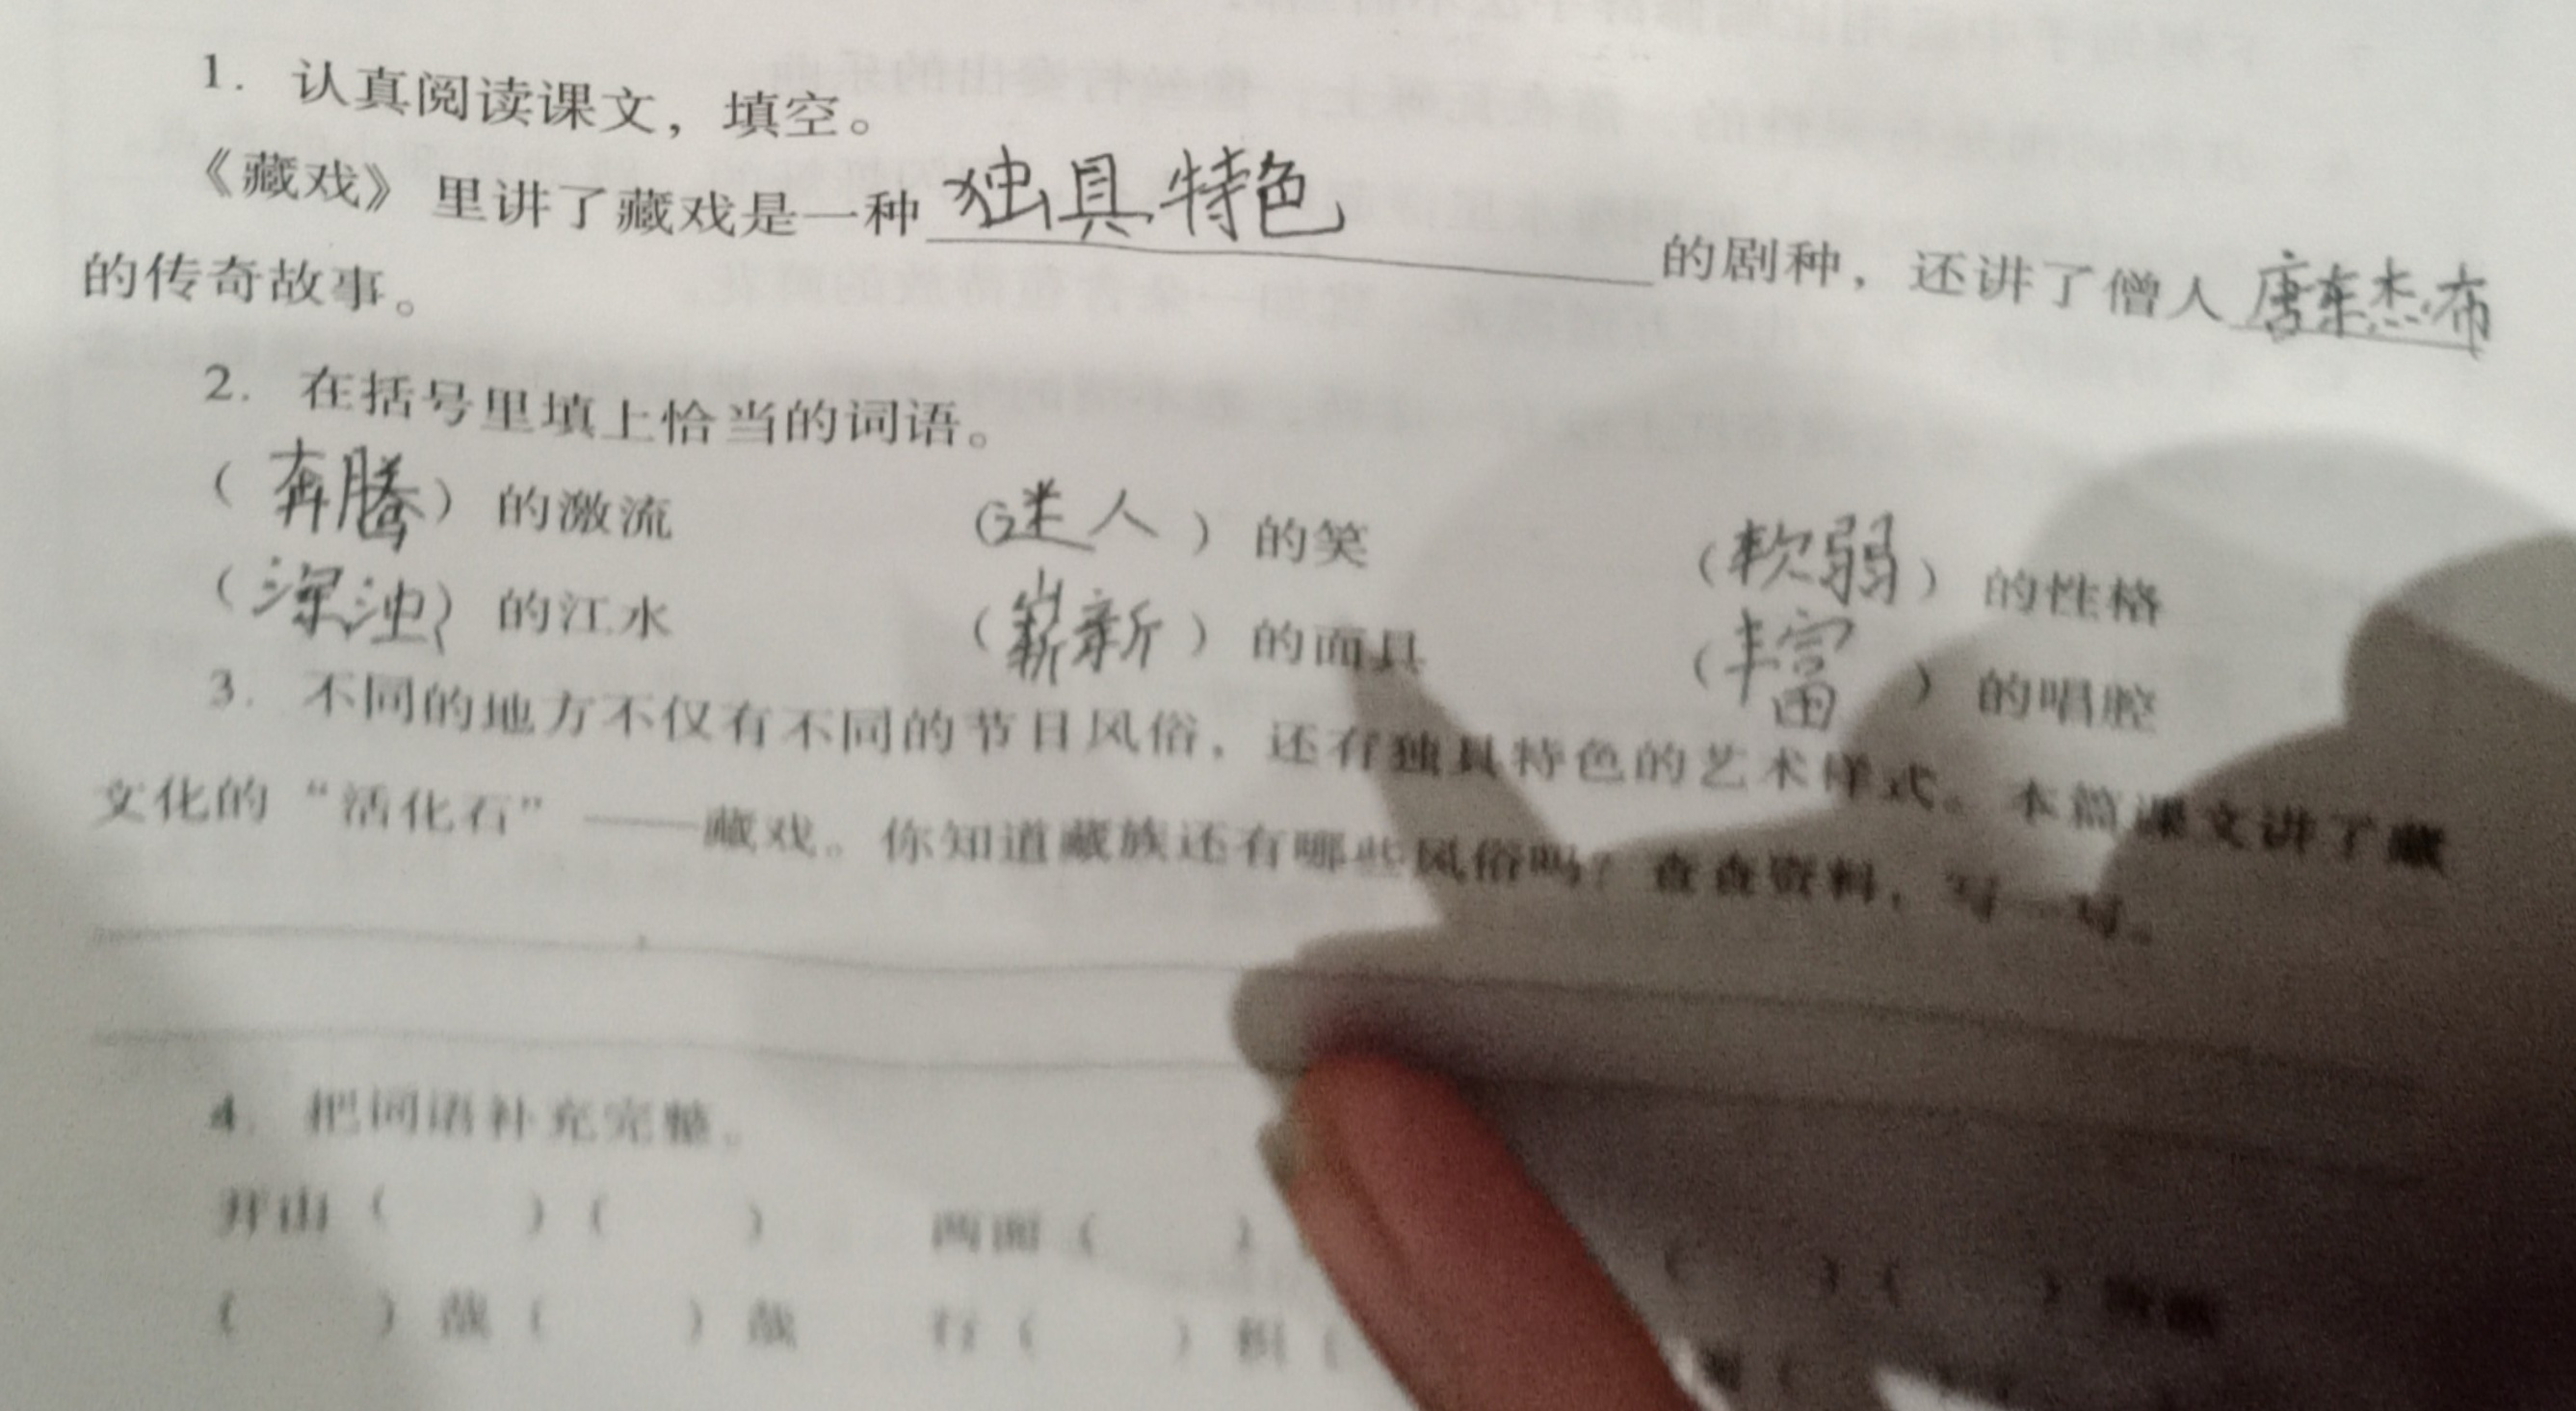 1. 认真阅读课文，填空。
《藏戏》里讲了藏戏是一种独具特色的剧种，还讲了僧人唐东杰布
的传奇故事。
2. 在括号里填上恰当的词语。
（奔腾）的激流 （迷人）的笑 （软弱）的性格
（浑浊）的江水 （崭新）的面具 （丰富）的唱腔
3. 不同的地方不仅有不同的节日风俗，还有独具特色的艺术样式。本篇课文讲了藏
文化的“活化石”——藏戏。你知道藏族还有哪些风俗吗？查查资料，写一写。
4. 把词语补充完整。
开山（ ）（ ） 两面（ ） （ ）（ ）
（ ）哉（ ）哉 行（ ）积（